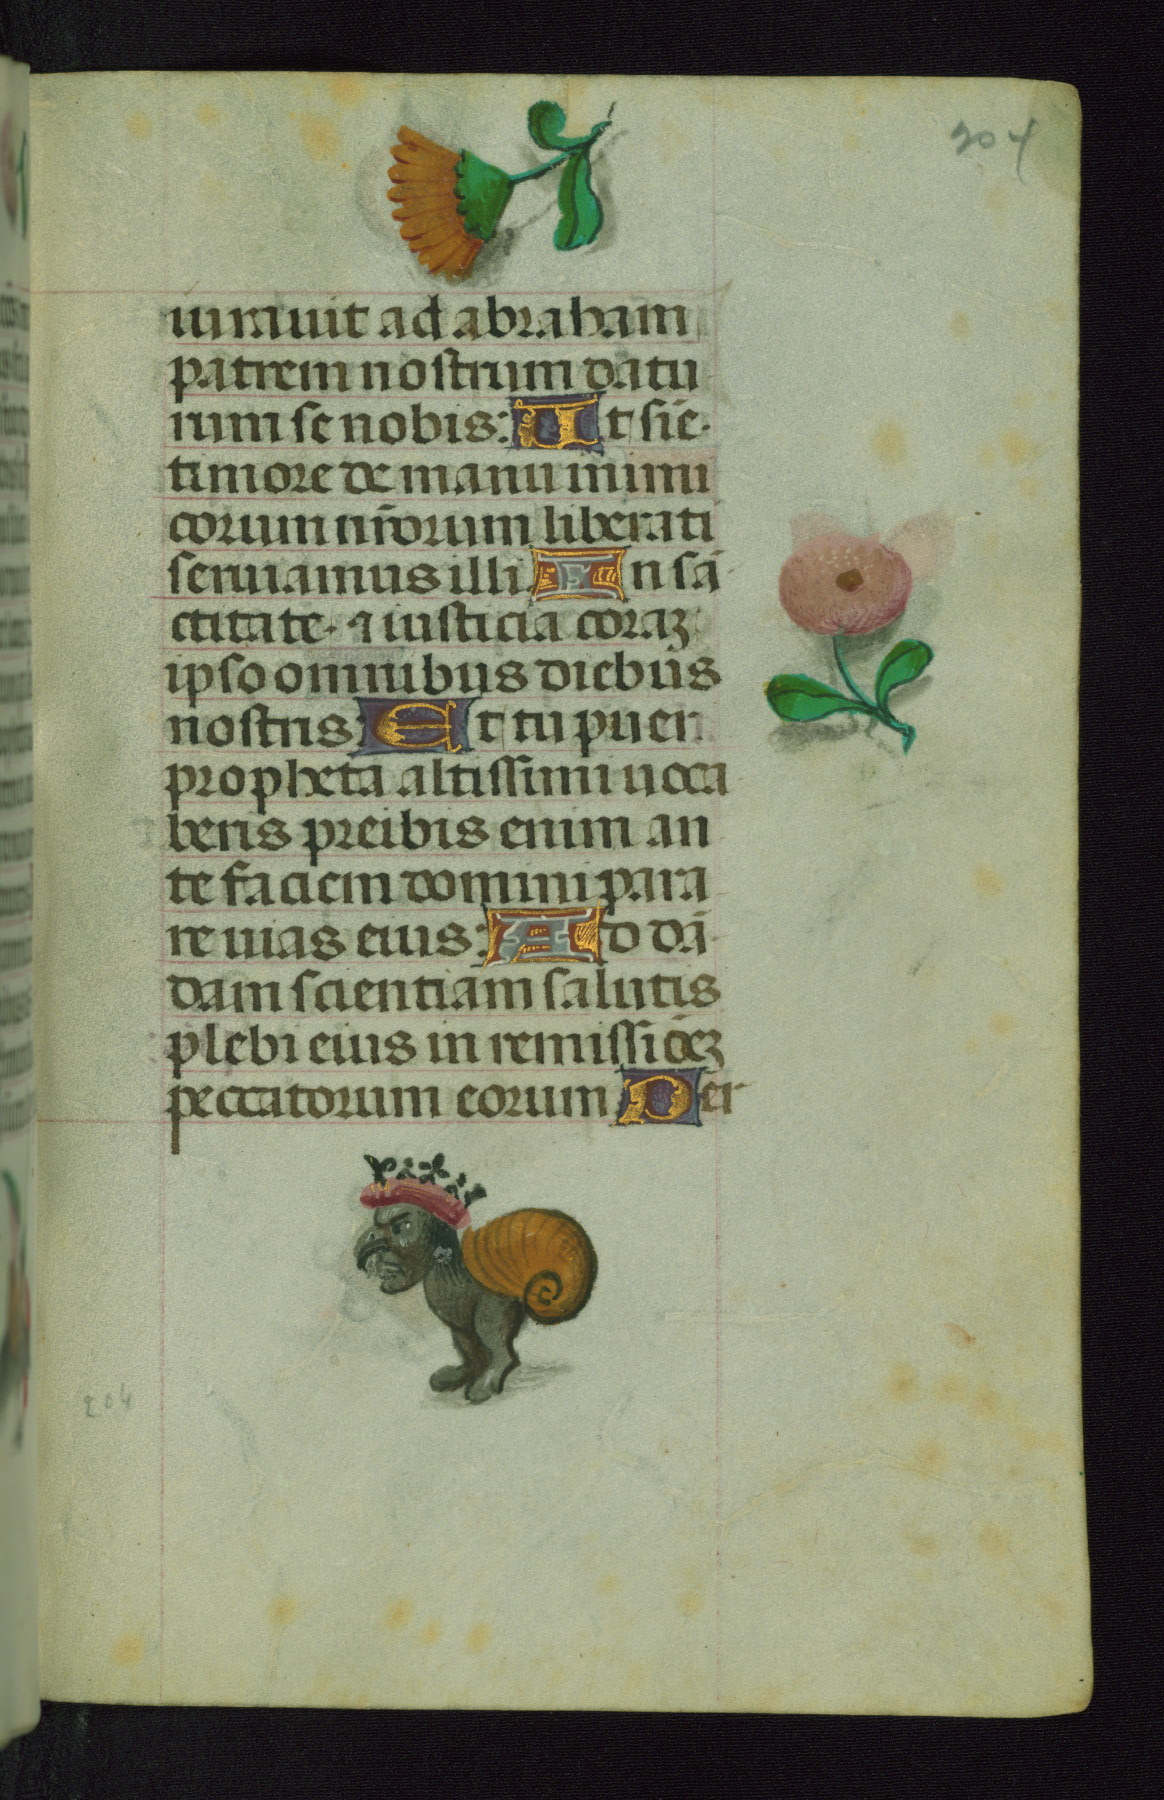 204
iuravit ad abraham
patrem nostrum datu
rum se nobis: Ut siē
timore de manu inimi
corum nr̄orum liberati
seruiamus illi In sā
ctitate· ⁊ iusticia coraʒ
ipso omnibus diebus
nostris: Et tu puer
propheta altissimi uoca
beris preibis enim an
te faciem domini para
re uias eius: Ad dā
dam scientiam salutis
plebi eius in remissiōeʒ
peccatorum eorum Per
204